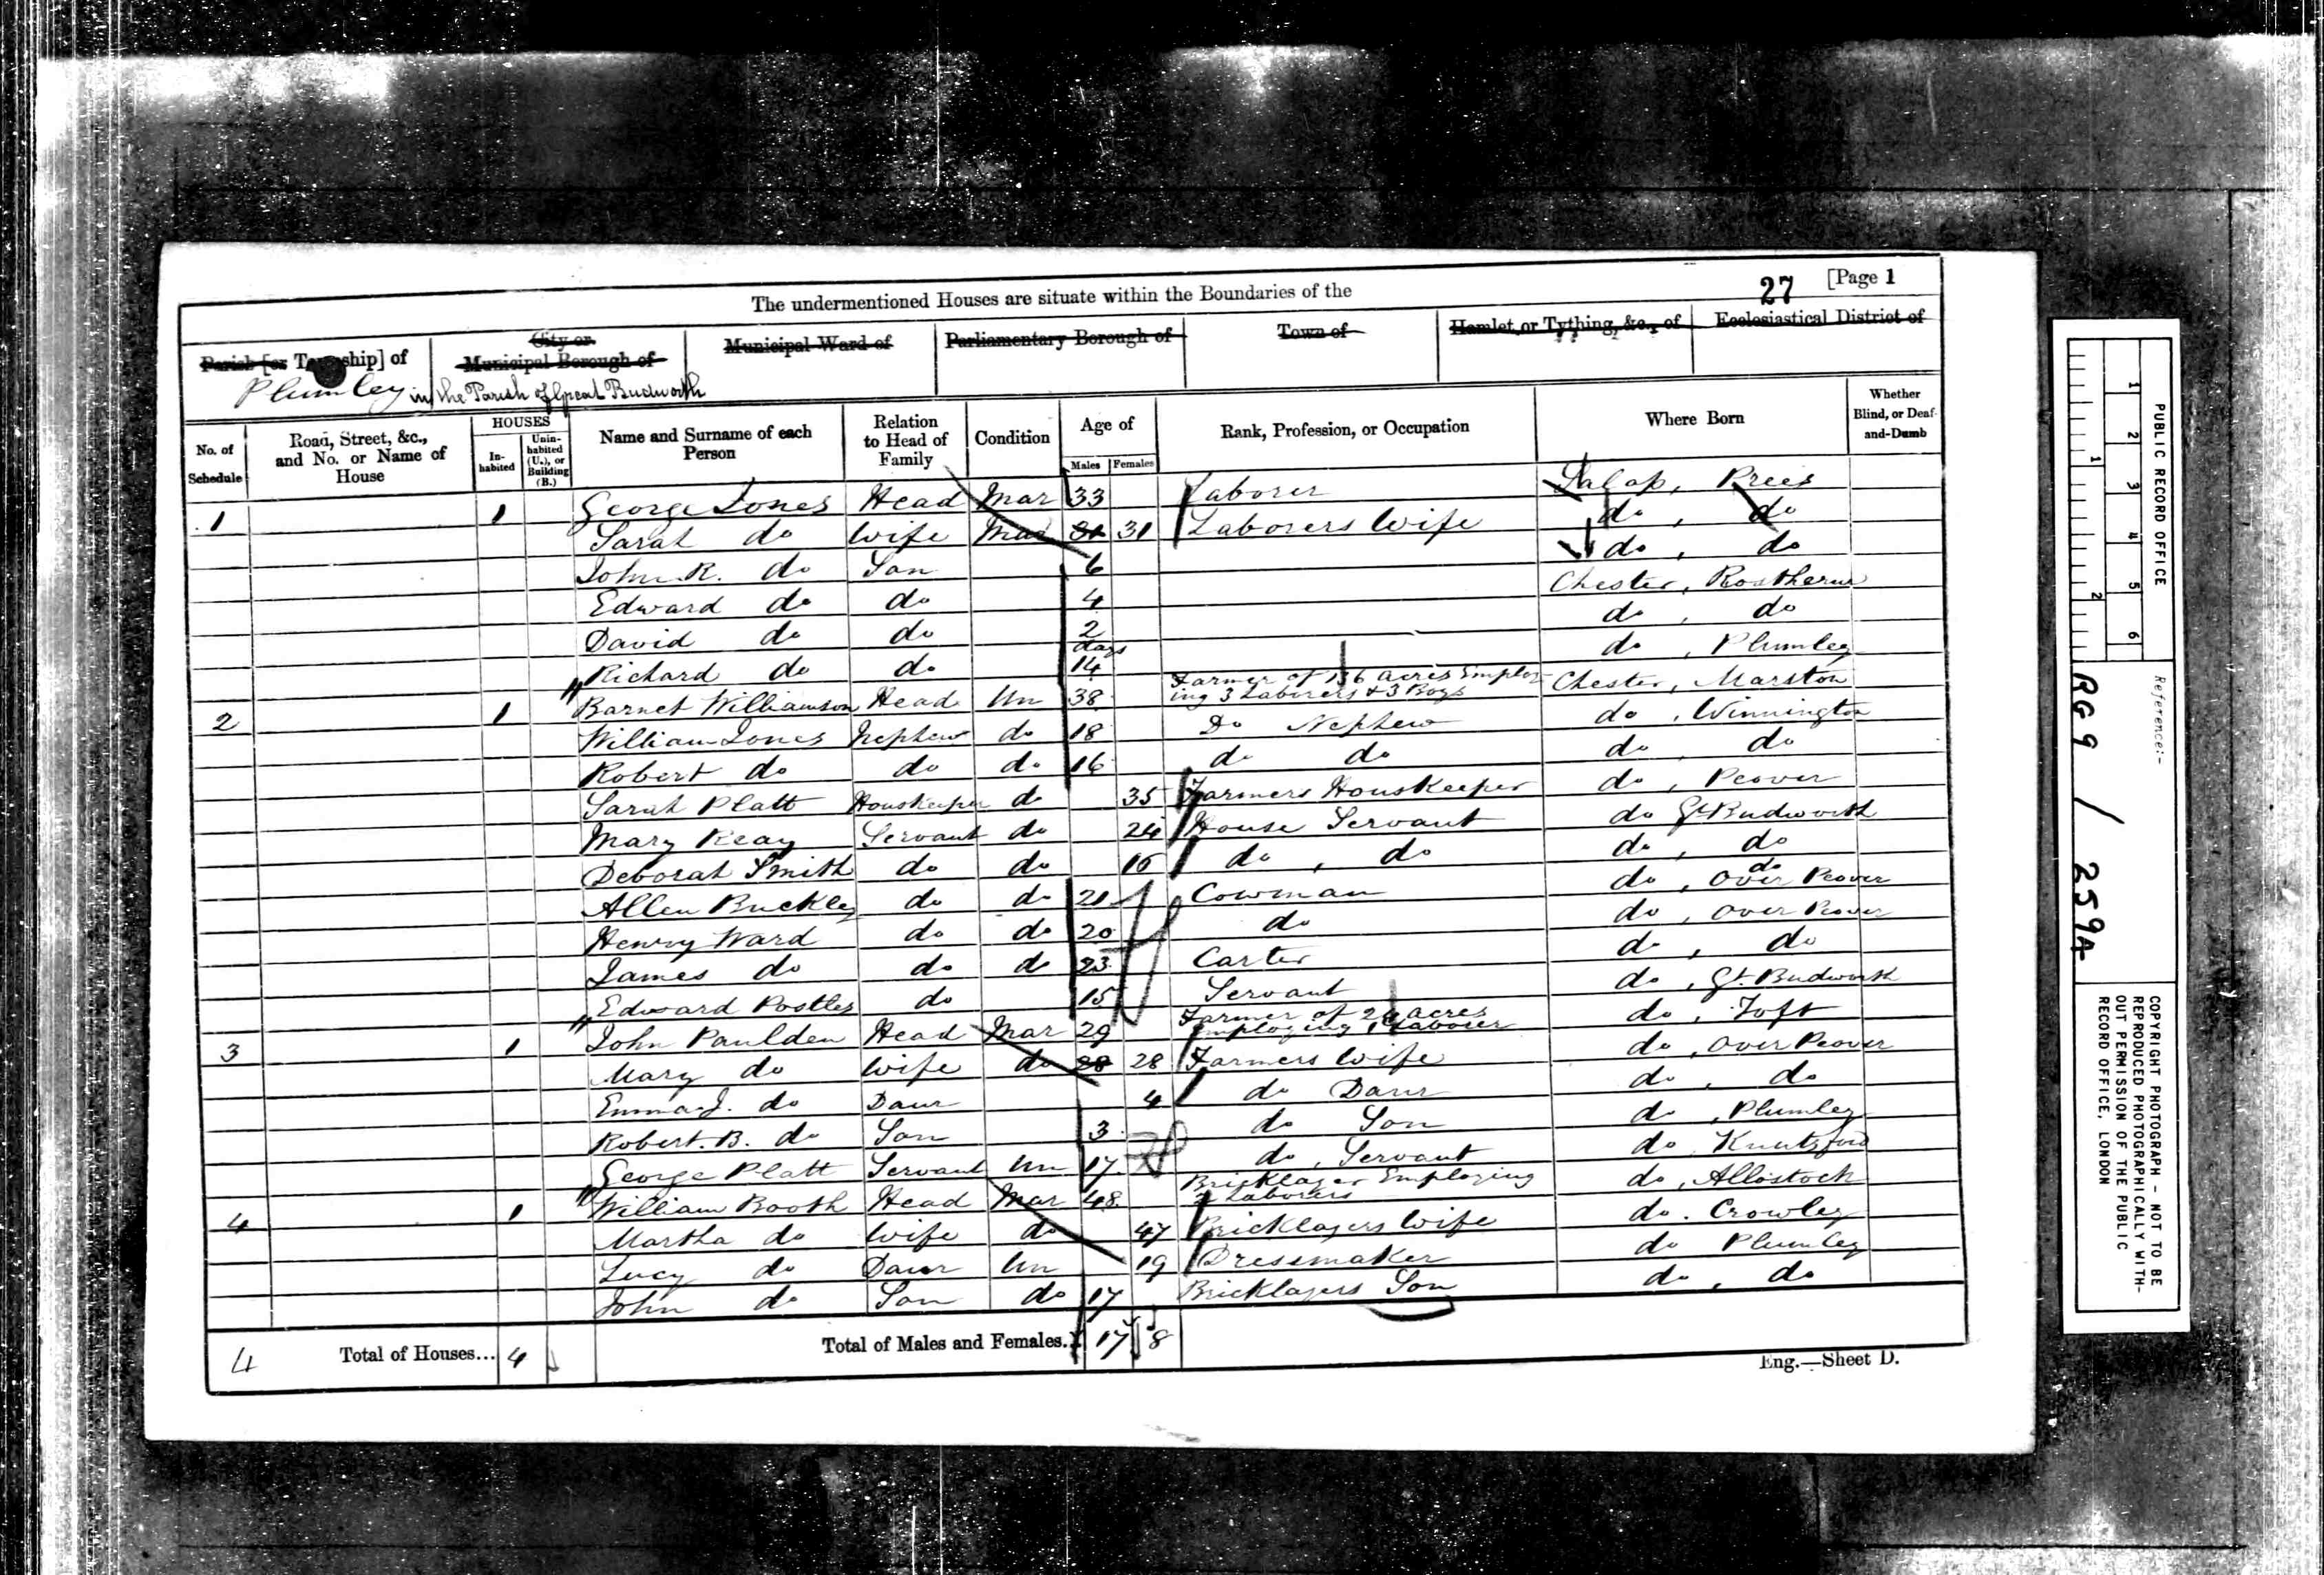 The undermentioned Houses are situate within the Boundaries of the
27 [Page 1
Parish [or Township] of
City or Municipal Borough of
Municipal Ward of
Parliamentary Borough of
Town of
Hamlet or Tything, &c., of
Ecclesiastical District of
Plumley in the Parish of Great Budworth
No. of Schedule
Road, Street, &c., and No. or Name of House
HOUSES
In-habited
Unin-habited (U.), or Building (B.)
Name and Surname of each Person
Relation to Head of Family
Condition
Age of
Males Females
Rank, Profession, or Occupation
Where Born
Whether Blind, or Deaf-and-Dumb
1 1 George Jones Head Mar 33 Laborer Salop, Prees
Sarah do Wife Mar 31 31 Laborers Wife do, do
John R. do Son 6 do, do
Edward do do 4 Chester, Rostherne
David do do 2 do, do
Richard do do days 14 do, Plumley
2 1 Barnet Williamson Head Un 38 Farmer of 136 acres Employing 3 Laborers & 3 Boys Chester, Marston
William Jones Nephew do 18 Do Nephew do, Winnington
Robert do do do 16 do do do, do
Sarah Platt Houskeeper do 35 Farmers Houskeeper do, Peover
Mary Reay Servant do 24 House Servant do Gt Budworth
Deborah Smith do do 16 do, do do, do
Allen Buckley do do 21 Cowman do, do Over Peover
Henry Ward do do 20 do do, Over Peover
James do do do 23 Carter do, do
Edward Postles do 15 Servant do, Gt. Budworth
3 1 John Paulden Head Mar 29 Farmer of acres Employing 1 Laborer do, Toft
Mary do Wife do 28 28 Farmers Wife do, Over Peover
Emma J. do Daur 4 do Daur do, do
Robert. B. do Son 3 do Son do, Plumley
George Platt Servant Un 17 do, Servant do, Knutsford
4 1 William Booth Head Mar 48 Bricklayer Employing 2 Laborers do, Allostock
Martha do Wife do 47 Bricklayers Wife do. Crowley
Lucy do Daur Un 19 Dressmaker do Plumley
John do Son do 17 Bricklayers Son do, do
4 Total of Houses... 4 Total of Males and Females... 17 8
Eng.—Sheet D.
1 2 3 4 5 6
1 2
PUBLIC RECORD OFFICE
Reference:-
RG 9 / 259A
COPYRIGHT PHOTOGRAPH - NOT TO BE
REPRODUCED PHOTOGRAPHICALLY WITH-
OUT PERMISSION OF THE PUBLIC
RECORD OFFICE, LONDON